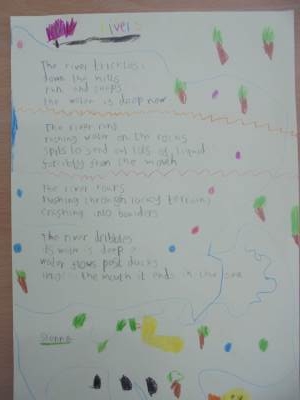 River
The river trickles
down the hills
run and
the water is deep now
The river runs
rushing water on the rocks
out lots of liquid
forcibly from the mouth
The river roars
Rushing through rocky terrain
crashing into boulders
The river dribbles
water is deep
water flows past ducks
the mouth it ends in the sea
Sienna